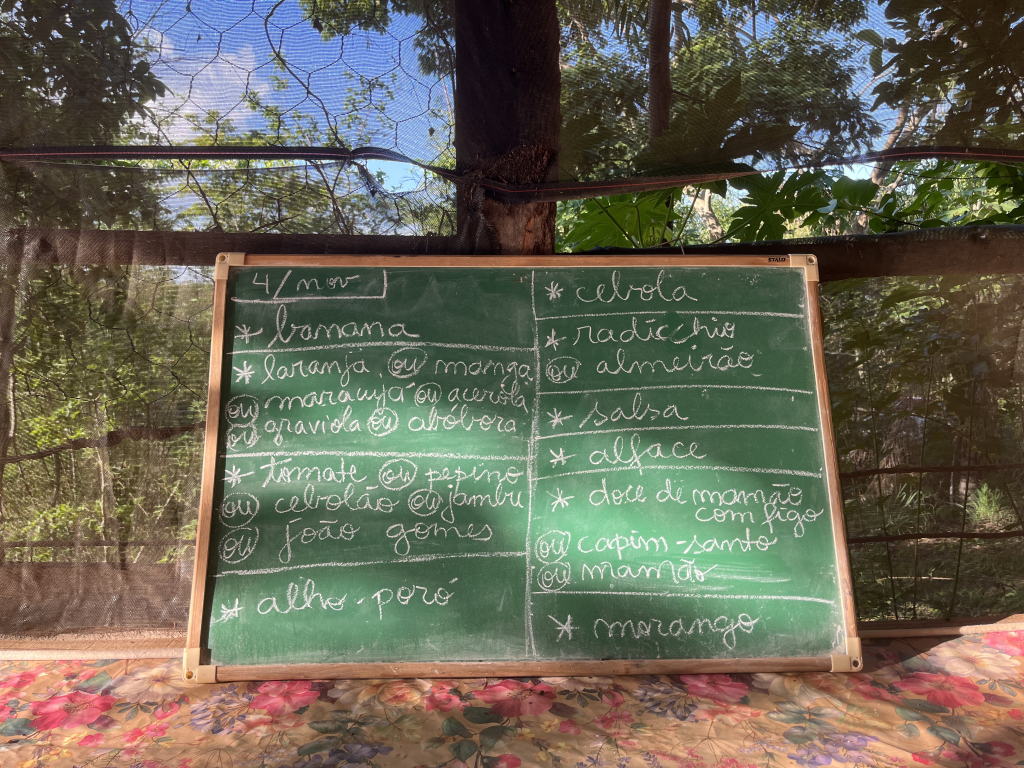 STALO
4/nov
* banana
* laranja ou manga
ou maracujá ou acerola
ou graviola ou abóbora
* tomate ou pepino
ou cebolão ou jambu
ou joão gomes
* alho-poró
* cebola
* radicchio
ou almeirão
* salsa
* alface
* doce de mamão
com figo
ou capim-santo
ou mamão
* morango